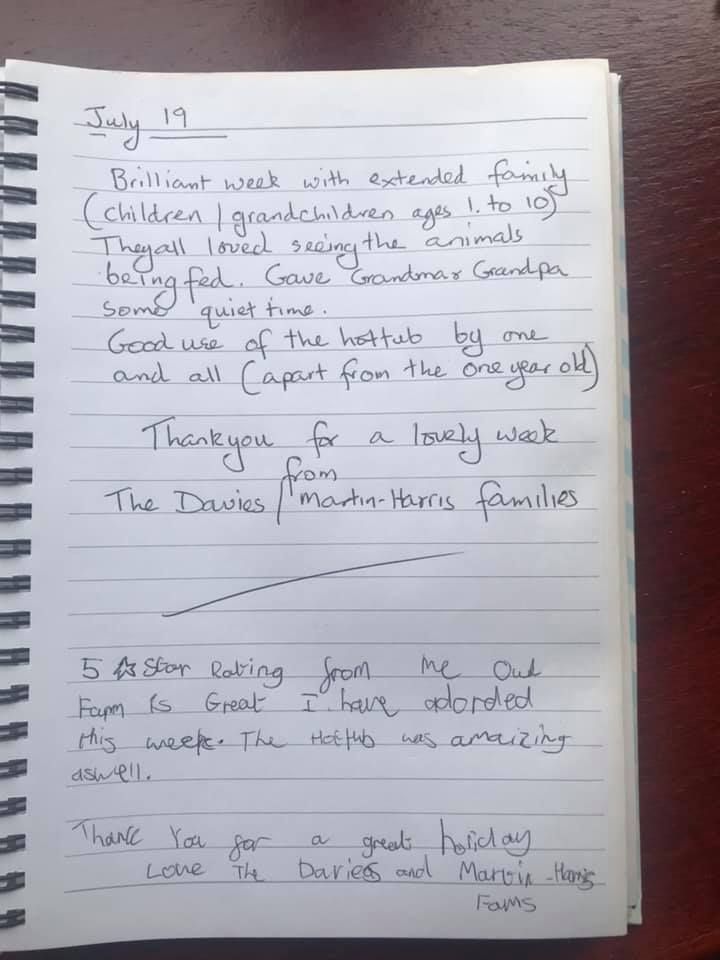 July 19
Brilliant week with extended family
(children / grandchildren ages 1. to 10)
They all loved seeing the animals
being fed. Gave Grandma & Grandpa
some quiet time.
Good use of the hottub by one
and all (apart from the one year old)
Thankyou for a lovely week
from
The Davies / Martin-Harris families
5 ☆ Star Rating from me Oud
Farm is Great I have adorded
this week. The Hottub was amaizing
aswell.
Thank You for a great holiday
Love The Davies and Martin-Harris
Fams